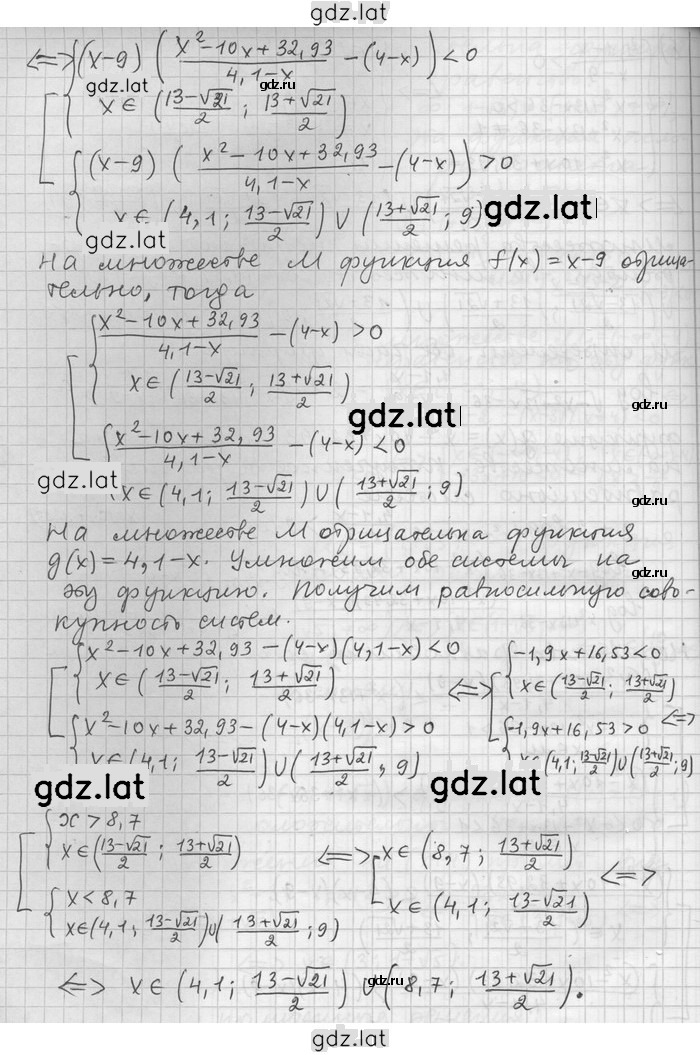 gdz.lat
⟺ { (x-9) ( (x²-10x+32,93)/(4,1-x) - (4-x) ) < 0
gdz.lat gdz.ru
x ∈ ( (13-√21)/2 ; (13+√21)/2 )
{ (x-9) ( (x²-10x+32,93)/(4,1-x) - (4-x) ) > 0
x ∈ (4,1; (13-√21)/2) ∪ ((13+√21)/2 ; 9)
gdz.lat gdz.lat
На множестве M функция f(x) = x-9 отрица-
тельно, тогда
{ (x²-10x+32,93)/(4,1-x) - (4-x) > 0
x ∈ ( (13-√21)/2 ; (13+√21)/2 )
gdz.lat gdz.ru
{ (x²-10x+32,93)/(4,1-x) - (4-x) < 0
gdz.lat
x ∈ (4,1; (13-√21)/2) ∪ ((13+√21)/2 ; 9)
На множестве M отрицательна функция
g(x) = 4,1-x. Умножим обе системы на
эту функцию. Получим равносильную сово-
купность систем.
{ x²-10x+32,93 - (4-x)(4,1-x) < 0 { -1,9x+16,53 < 0
x ∈ ( (13-√21)/2 ; (13+√21)/2 ) ⟺ x ∈ ((13-√21)/2 ; (13+√21)/2)
{ x²-10x+32,93 - (4-x)(4,1-x) > 0 { -1,9x+16,53 > 0 ⟺
x ∈ (4,1; (13-√21)/2) ∪ ((13+√21)/2 ; 9) x ∈ (4,1; (13-√21)/2) ∪ ((13+√21)/2 ; 9)
gdz.lat gdz.lat
{ x > 8,7
x ∈ ((13-√21)/2 ; (13+√21)/2) ⟺ [ x ∈ (8,7; (13+√21)/2) ⟺
{ x < 8,7 x ∈ (4,1; (13-√21)/2)
x ∈ (4,1; (13-√21)/2) ∪ ((13+√21)/2 ; 9)
gdz.ru
⟺ x ∈ (4,1; (13-√21)/2) ∪ (8,7; (13+√21)/2).
gdz.lat